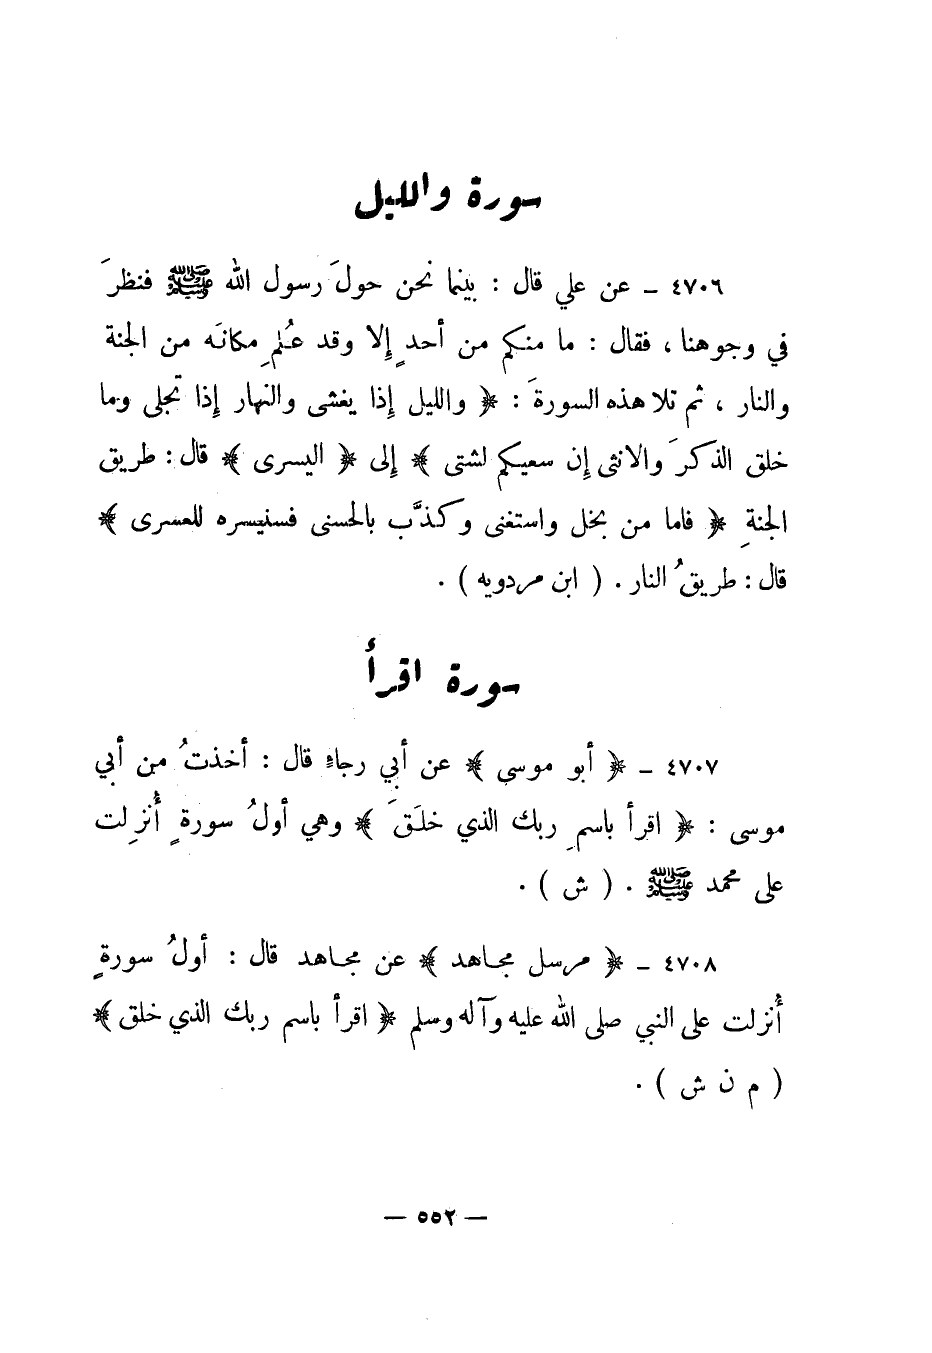 سورة والليل
٤٧٠٦ ـ عن علي قال : بينما نحن حولَ رسول الله ﷺ فنظرَ
في وجوهنا ، فقال : ما منكم من أحدٍ إلا وقد عُلمِ مكانَه من الجنة
والنار ، ثم تلا هذه السورةَ : ﴿ والليل إذا يغشى والنهار إذا تجلى وما
خلق الذكرَ والانثى إن سعيكم لشتى ﴾ إلى ﴿ اليسرى ﴾ قال : طريق
الجنةِ ﴿ فاما من بخل واستغنى وكذَّب بالحسنى فسنيسره للعسرى ﴾
قال : طريقُ النار . ( ابن مردويه ) .
سورة اقرأ
٤٧٠٧ ـ ﴿ أبو موسى ﴾ عن أبي رجاءٍ قال : أخذتُ من أبي
موسى : ﴿ اقرأ باسمِ ربك الذي خلَقَ ﴾ وهي أولُ سورةٍ أُنزِلت
على محمد ﷺ . ( ش ) .
٤٧٠٨ ـ ﴿ مرسل مجاهد ﴾ عن مجاهد قال : أولُ سورةٍ
أُنزلت على النبي صلى الله عليه وآله وسلم ﴿ اقرأ باسم ربك الذي خلق ﴾
( م ن ش ) .
— ٥٥٢ —